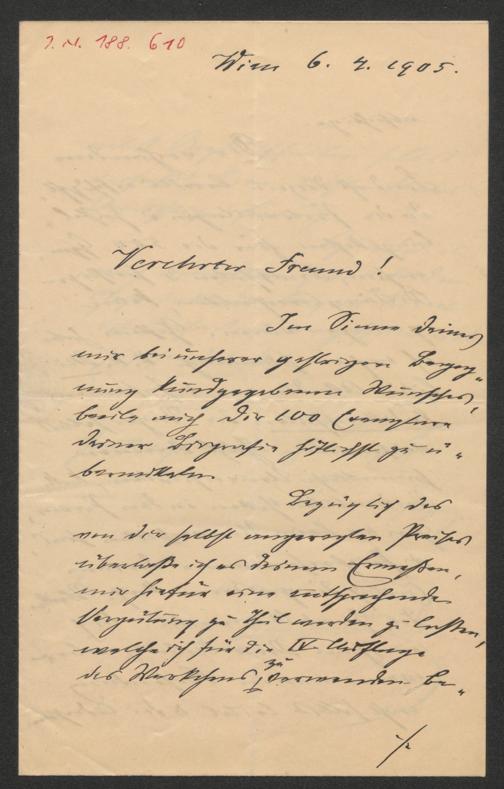 J.N. 188.610
Wien 6. 4. 1905.
Verehrter Freund!
Im Sinne deines
mir bei unserer gestrigen Begeg„
nung kundgegebenen Wunsches,
beeile mich Dir 100 Exemplare
deiner Biografie höflichst zu ü„
bermitteln.
Bezüglich des
von dir selbst angeregten Preises
überlaße ich es deinem Ermeßen,
mir hiefür eine entsprechende
Vergütung zu Theil werden zu lassen,
welche ich für die IV. Auflage
des Werkchens zu verwenden be„
./.